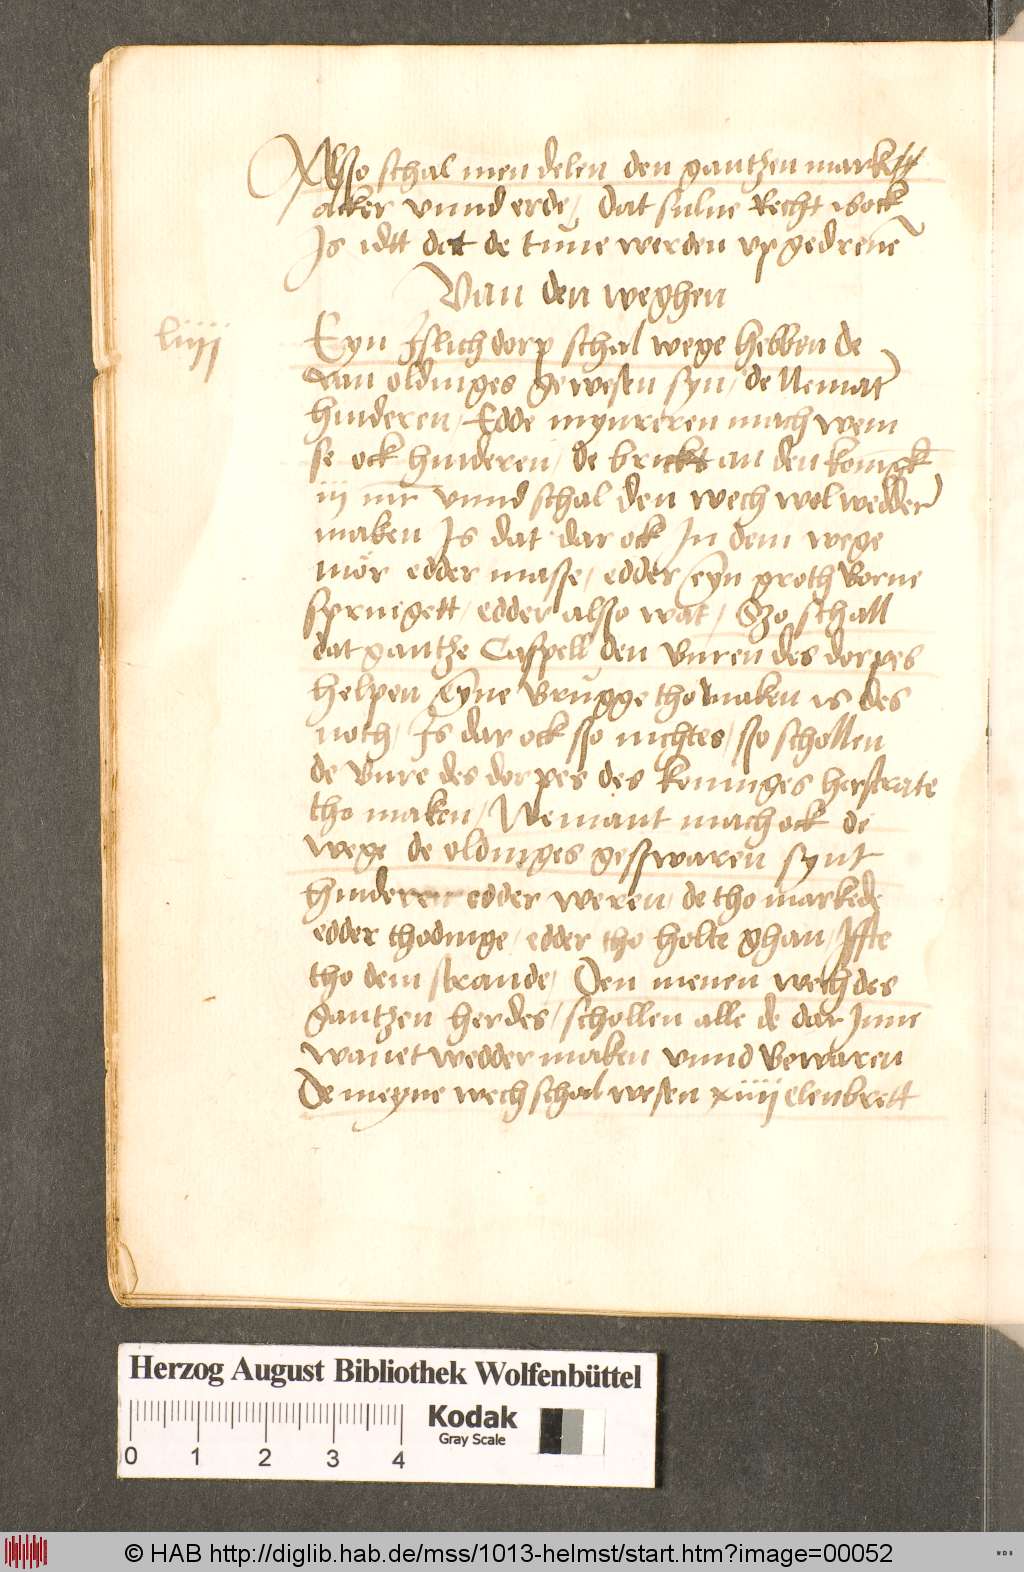 Alsso schal men delen den gantzen mark
acker vnnd erde, dat sulue Recht is ock
Is idtt dat de tune werden vpgedreuē
Van den weghen
liiij
Eyn Jslich dorp schal wege hebben de
van oldinges gewesen syn, de Nemāt
hinderen, Edde mynreren mach wein
se ock hinderen, de brickt an den konīgk
iij mr vnnd schal den wech wol wedder
maken Is dat dar ock In dem wege
mör edder masse, edder eyn groth borne
springett, edder also wat, Szo schall
dat gantze Caspell den buren des dorpes
helpen Eyne brugge tho maken is des
noth, Is dar ock sso nichtes, sso schollen
de bure des dorpes des koninges herstrate
tho maken, Nemant mach ock de
wege de oldinges gesswaren synt
hinderen edder weren, de tho markede
edder thodinge, edder tho holte ghan, Iffte
tho dem strande, Den menen wech des
gantzen herdes, schollen alle de dar Inne
wanet wedder maken vnnd bewaren
De meyne wech schal wesen xiiij elenbrett
Herzog August Bibliothek Wolfenbüttel
Kodak
Gray Scale
0 1 2 3 4
© HAB http://diglib.hab.de/mss/1013-helmst/start.htm?image=00052